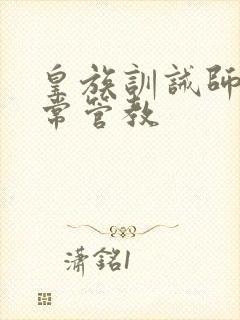 皇族訓誡師
常管教
瀟銘1